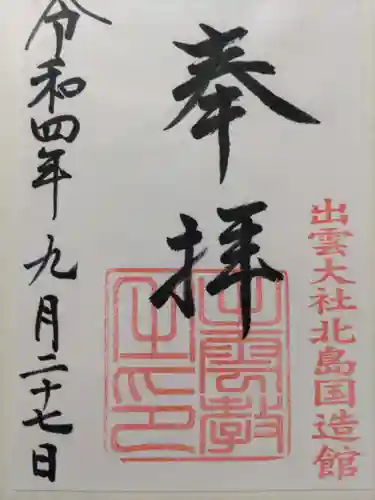 出雲大社北島国造館
奉拝
出雲教
令和四年九月二十七日